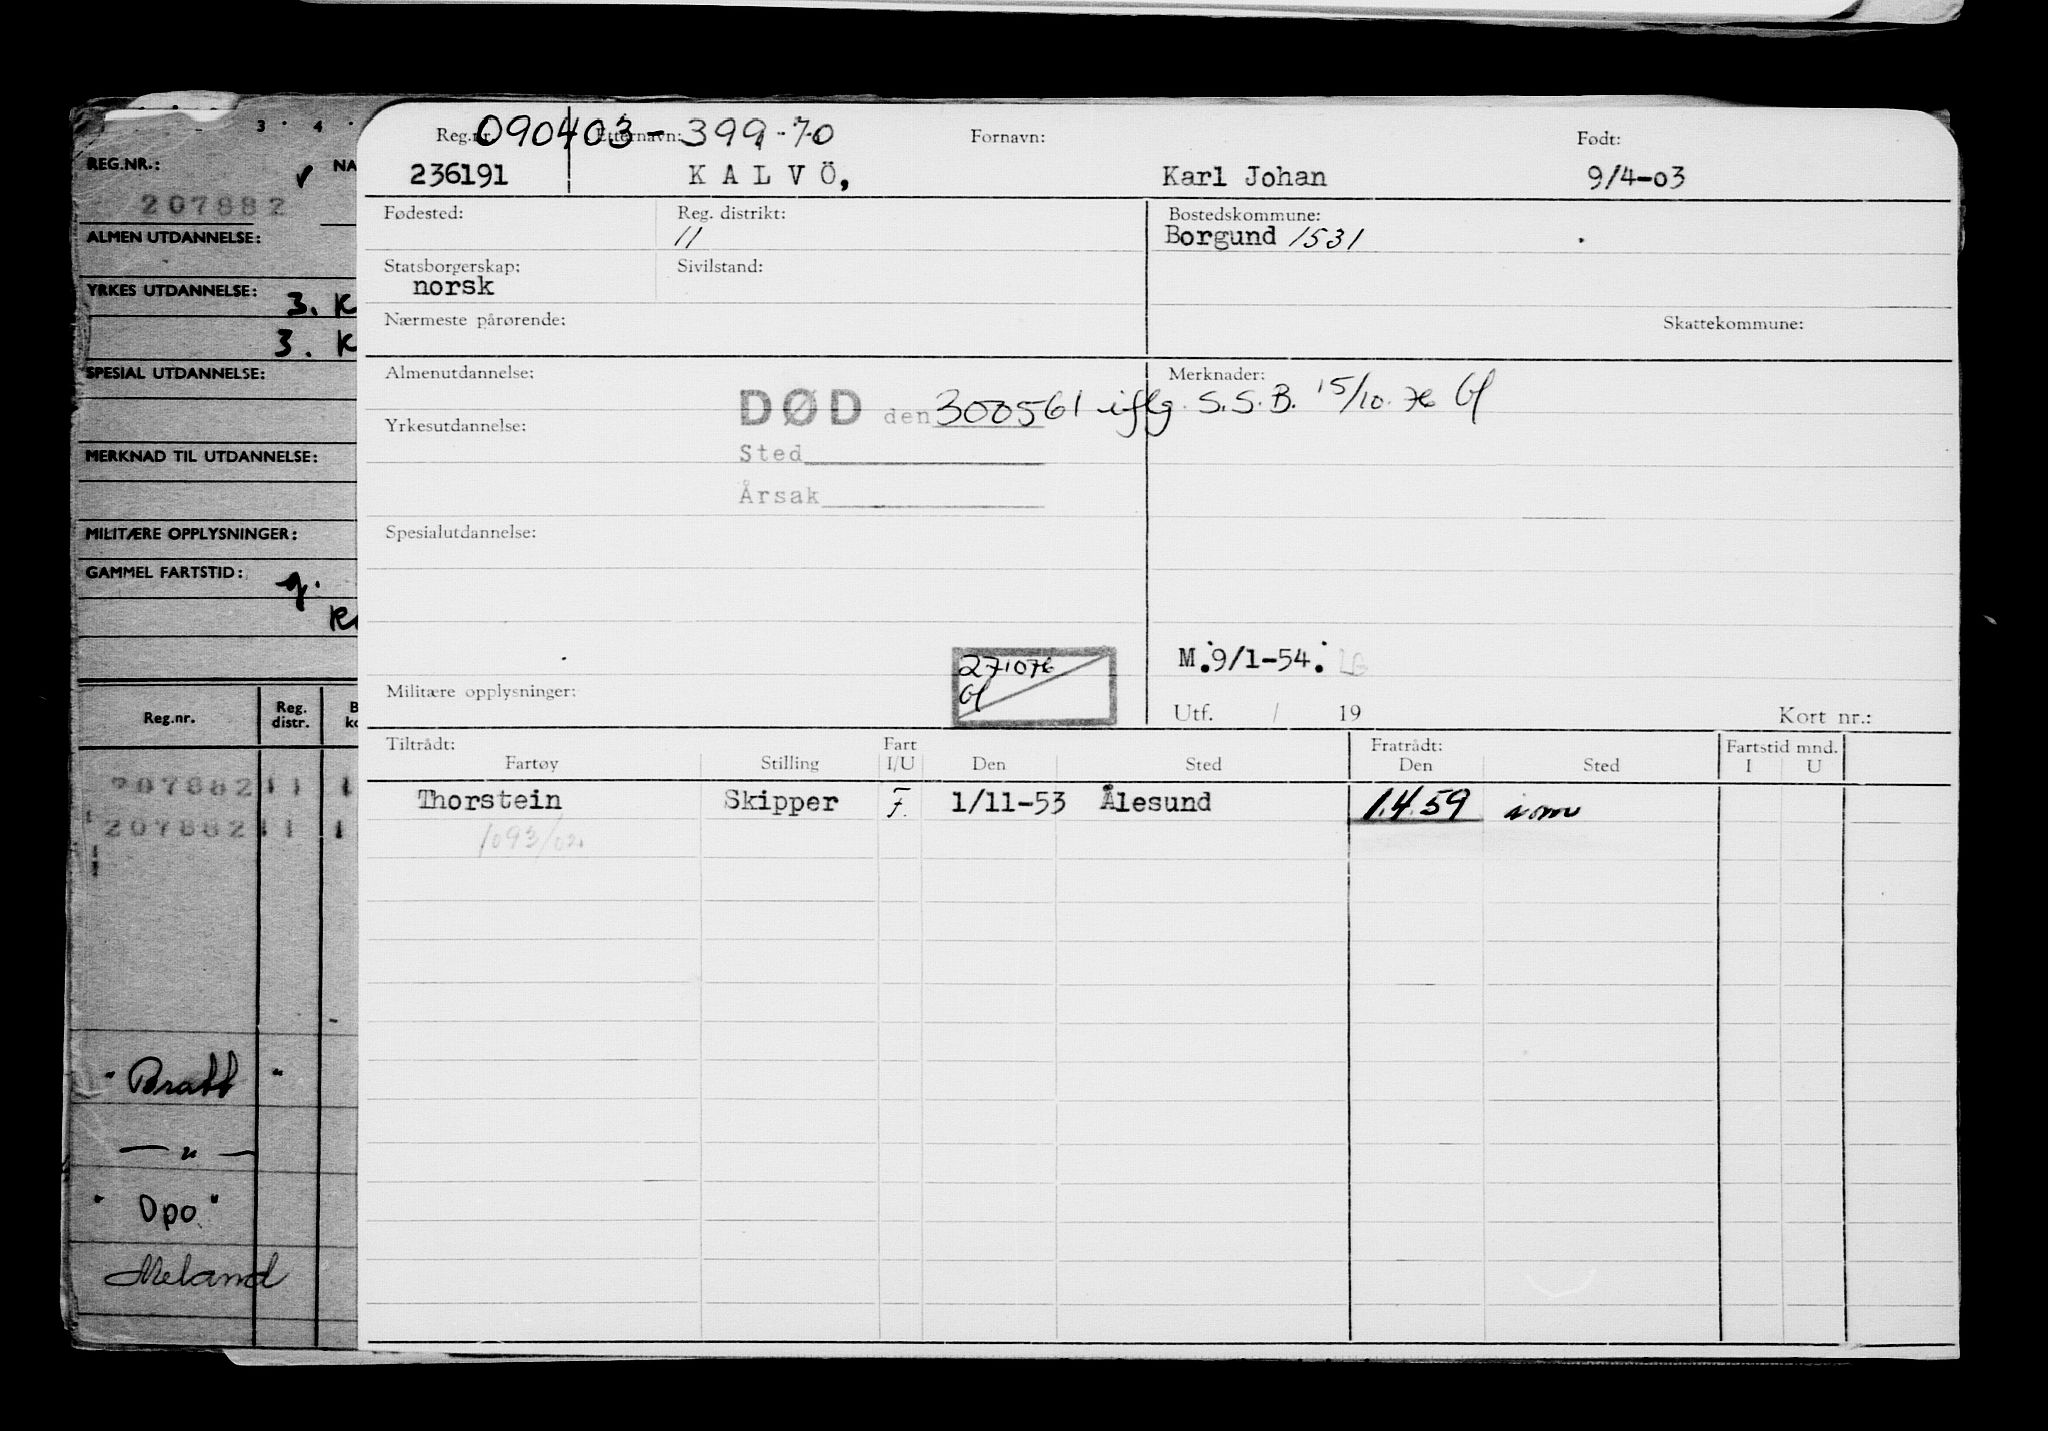 3 · 4 ·
REG.NR.: NA
207882
ALMEN UTDANNELSE:
YRKES UTDANNELSE: 3. K
3. K
SPESIAL UTDANNELSE:
MERKNAD TIL UTDANNELSE:
MILITÆRE OPPLYSNINGER:
GAMMEL FARTSTID:
Reg.nr. Reg. distr. B ko
207882 11 1
207882 11 1
"Bratt "
— " —
"Opo"
Meland
Reg.nr. Etternavn: Fornavn: Født:
090403-399.70
236191 KALVÖ, Karl Johan 9/4-03
Fødested: Reg. distrikt: Bostedskommune:
11 Borgund 1531
Statsborgerskap: Sivilstand:
norsk
Nærmeste pårørende: Skattekommune:
Almenutdannelse: Merknader:
DØD den 300561 iflg. S.S.B. 15/10.76
Yrkesutdannelse:
Sted
Årsak
Spesialutdannelse:
M.9/1-54.
271076
Militære opplysninger:
Utf. / 19 Kort nr.:
Tiltrådt: Fart Fratrådt: Fartstid mnd.
Fartøy Stilling I/U Den Sted Den Sted I U
Thorstein Skipper F. 1/11-53 Ålesund 1.4.59